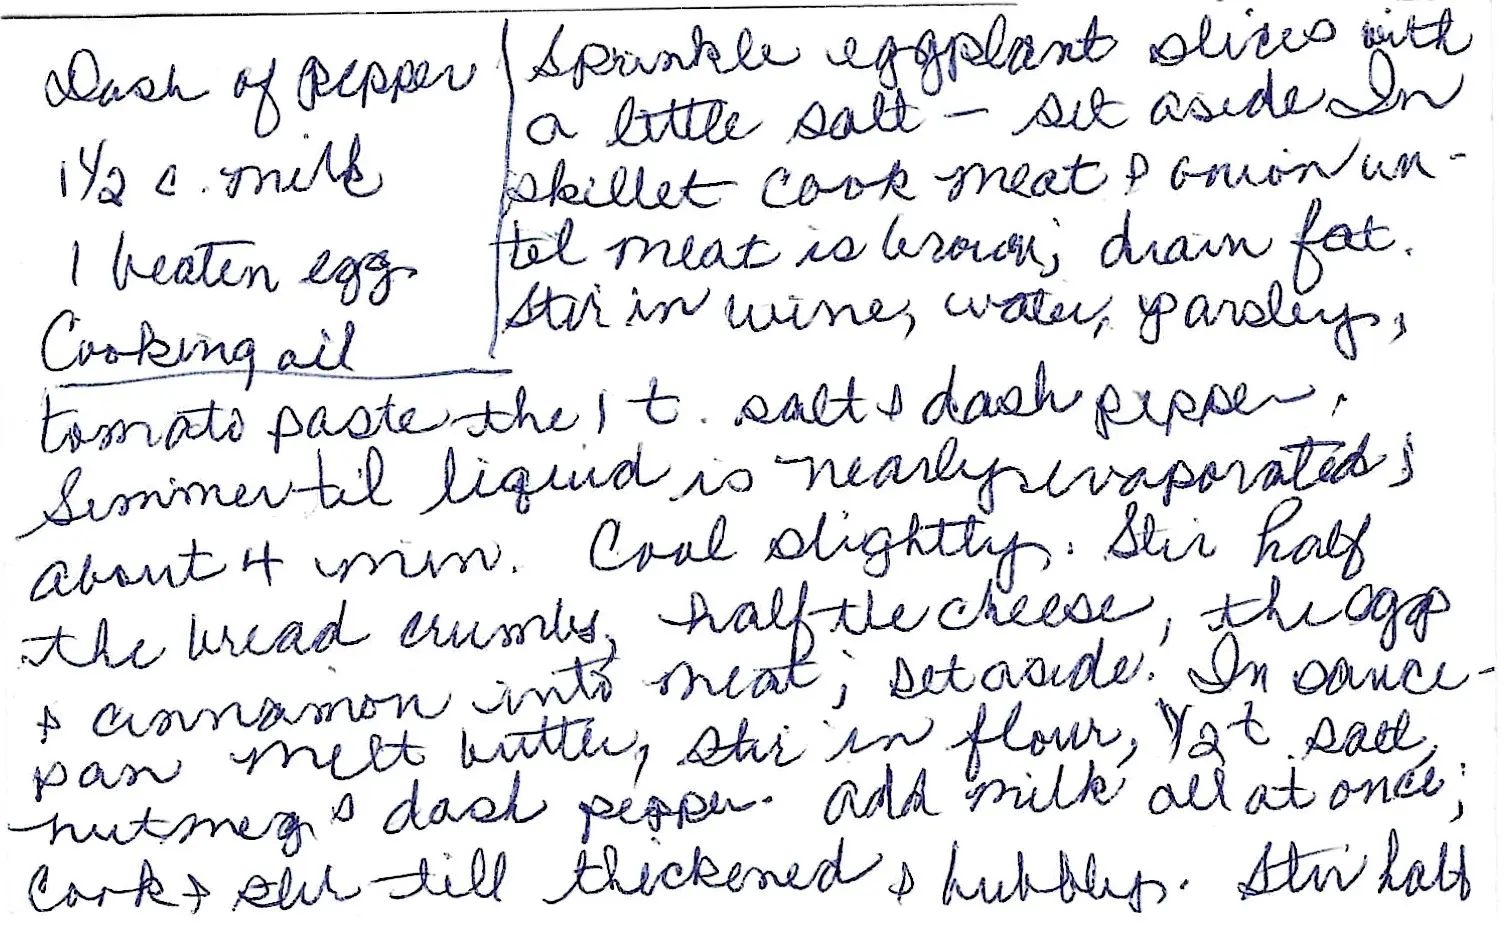 Dash of pepper
1 1/2 c. milk
1 beaten egg
Cooking oil
Sprinkle eggplant slices with
a little salt - set aside In
skillet cook meat & onion un-
til meat is brown; drain fat.
Stir in wine, water, parsley,
tomato paste the 1 t. salt & dash pepper.
Simmer til liquid is nearly evaporated;
about 4 min. Cool slightly. Stir half
the bread crumbs, half the cheese, the egg
& cinnamon into meat; set aside. In sauce-
pan melt butter, stir in flour, 1/2 t salt,
nutmeg & dash pepper. add milk all at once;
Cook & stir till thickened & bubbly. Stir half